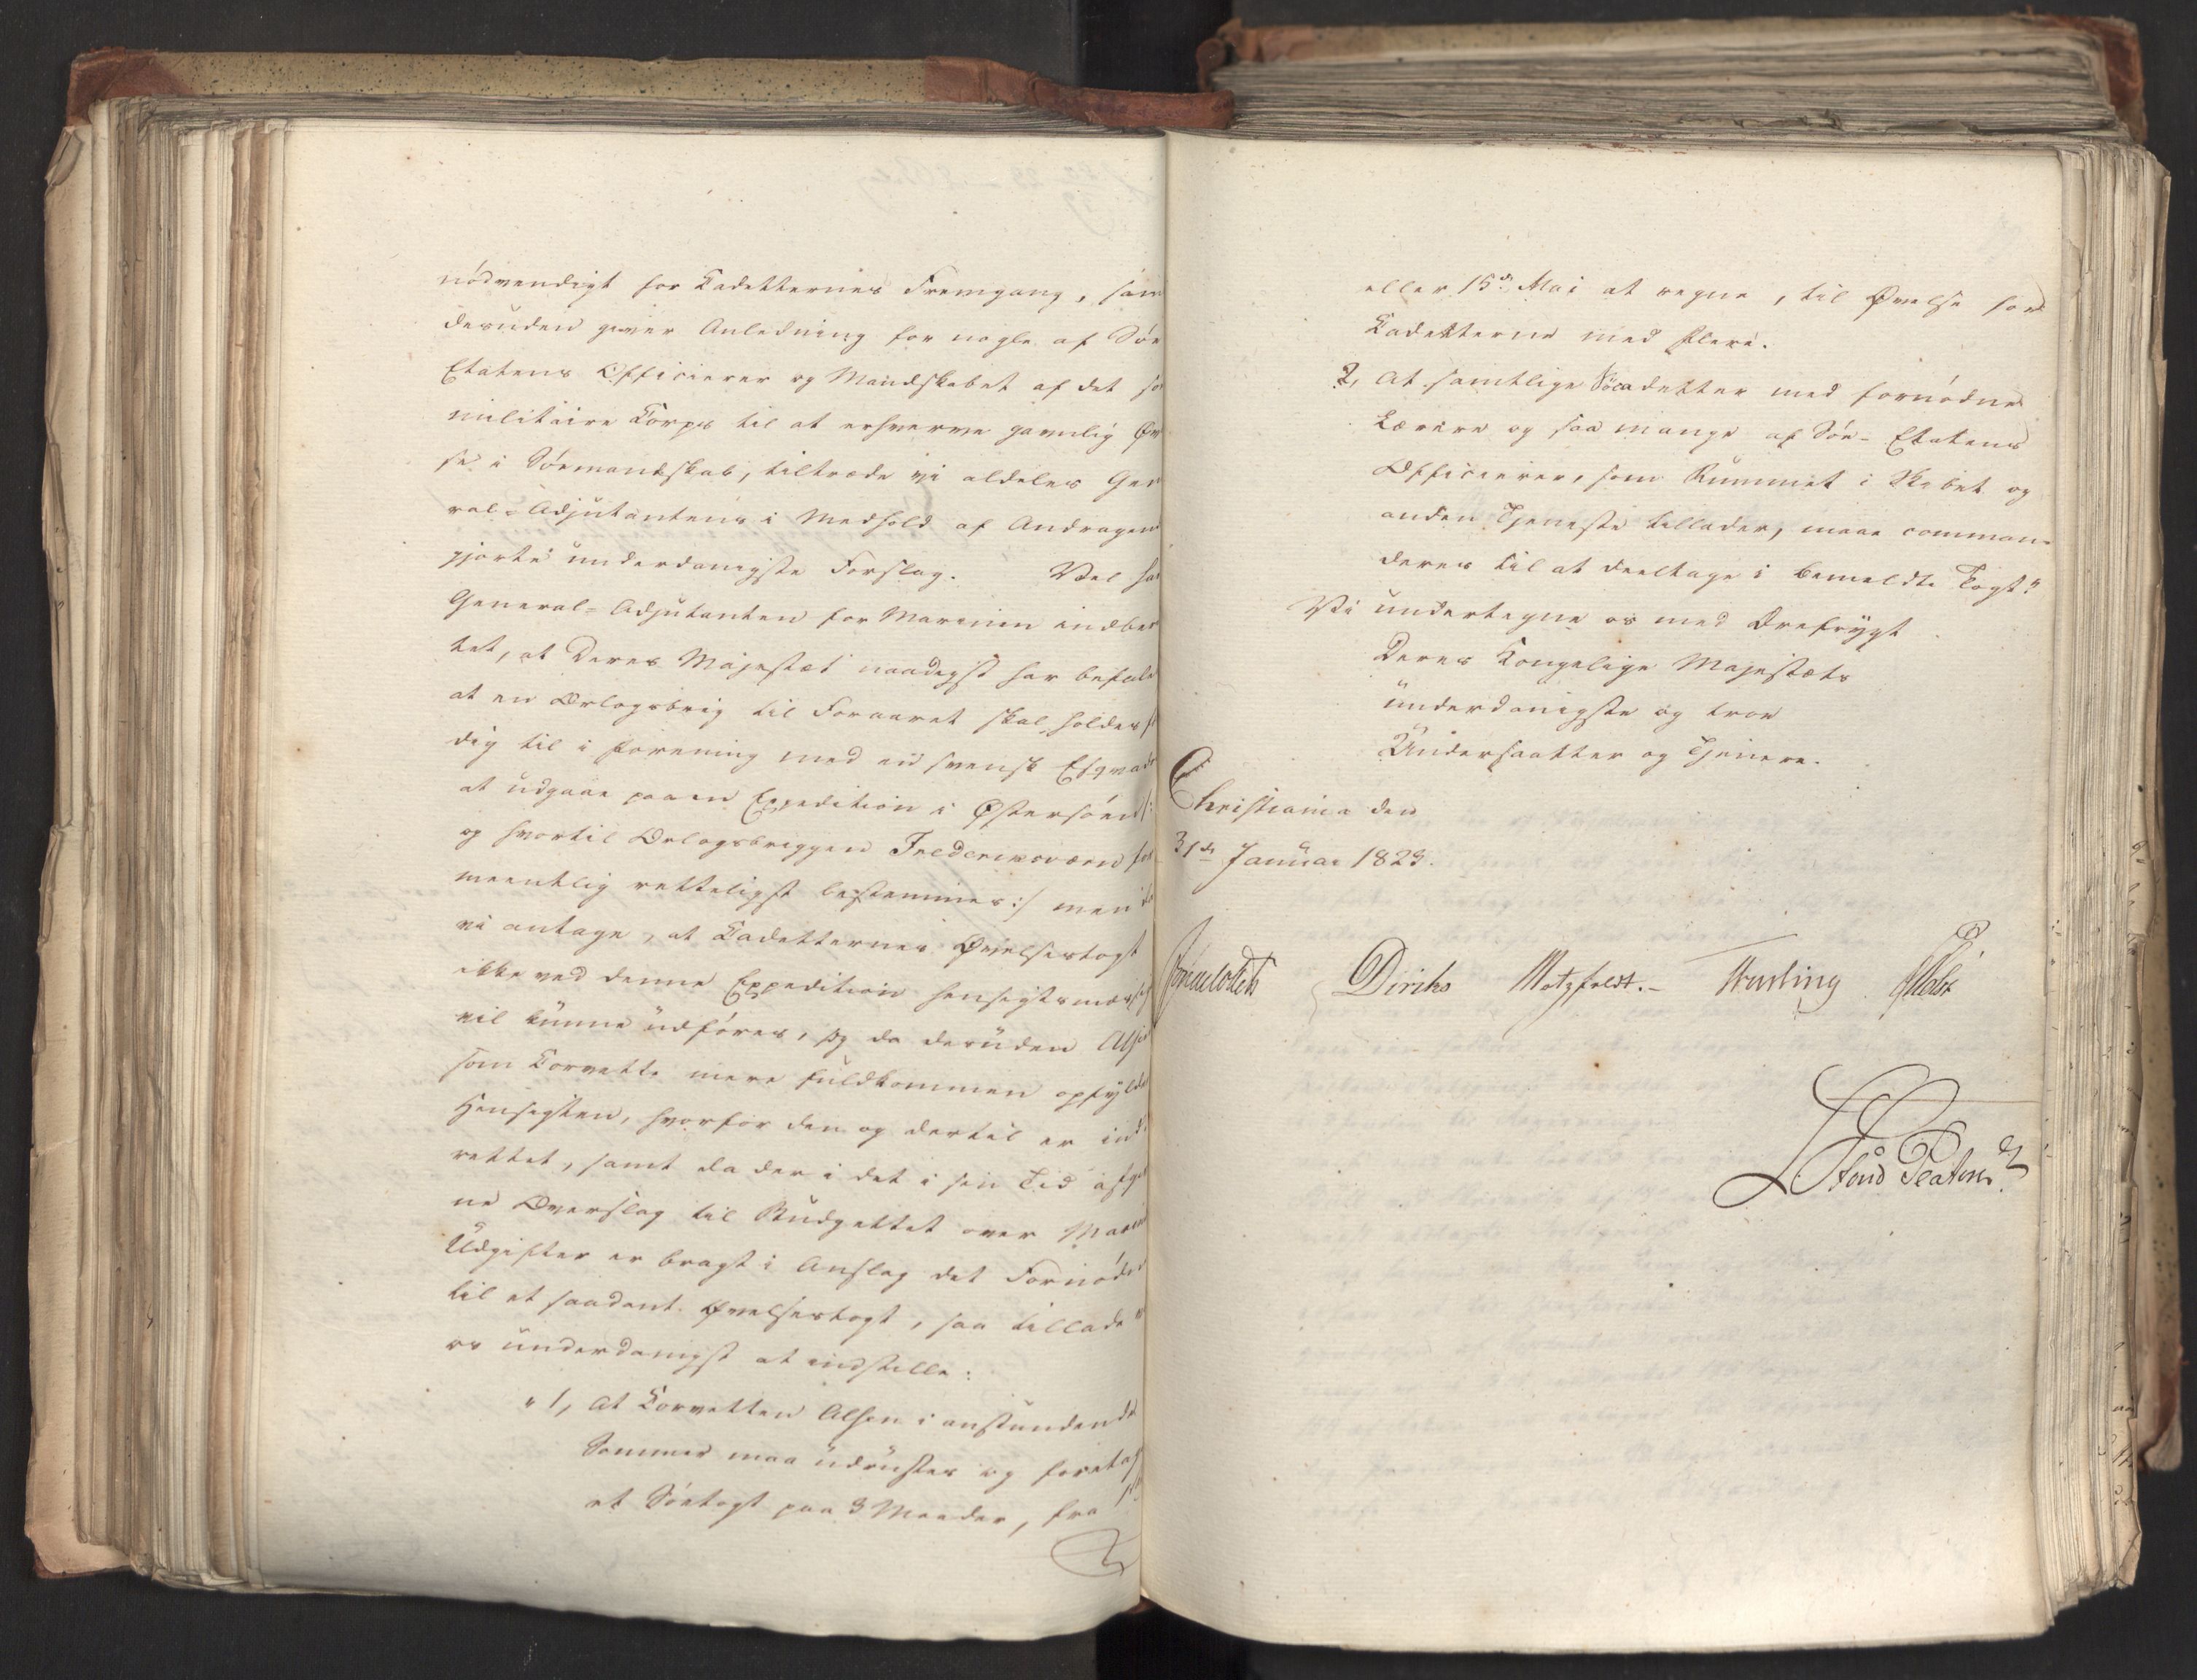 nödvendigt for Cadetternes Fremgang, som
desuden giver Anledning for nogle af Söe
Etatens Officierer og Mandskabet af det so
militaire Corps til at erhverve gavnlig Øv
se i Sömandskab, tiltræde vi aldeles Gen
ral-Adjutantens i Medhold af Andragen
gjorte underdanigste Forslag. Vel har
General-Adjutanten for Marinen indber
tet, at Deres Majestæt naadigst har befale
at en Orlogsbrig til Foraaret skal holdes f
dig til i Forening med en svensk Esqvadr
at udgaae paa en Expedition i Østersöen /:
og hvortil Orlogsbriggen Frederiksværn for
meentlig retteligst bestemmes :/ men da
vi antage, at Cadetternes Øvelsestogt
ikke ved denne Expedition hensigtsmæssig
vil kunne udföres, og da desuden Alsen
som Corvette mere fuldkommen opfylder
Hensigten, hvorfor den og dertil er ind-
rettet, samt da der i det i sin Tid afgiv
ne Overslag til Budgettet over Marine
Udgifter er bragt i Anslag det Fornödne
til et saadant Øvelsestogt, saa tillade vi
os underdanigst at indstille:
" 1, At Corvetten Alsen i anstundende
Sommer maa udrustes og foretage
et Söetogt paa 3 Maaneder, fra 1ste
eller 15de Mai at regne, til Øvelse for
Cadetterne med Flere.
2, At samtlige Söcadetter med fornödne
Lærere og saa mange af Söe-Etatens
Officierer, som Rummet i Skibet og
anden Tjeneste tillader, maae comman-
deres til at deeltage i bemeldte Togt."
Vi undertegne os med Ærefrygt
Deres Kongelige Majestæts
underdanigste og troe
Undersaatter og Tjenere.
Christiania den
31te Januar 1829.
Diriks Motzfeldt.-